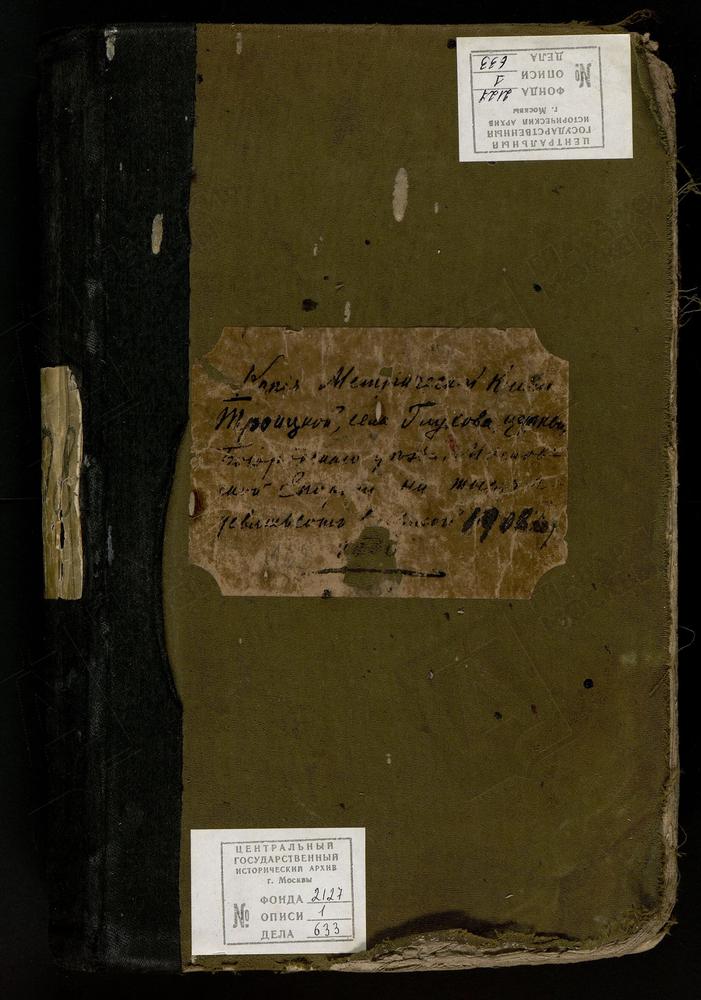 ЦЕНТРАЛЬНЫЙ
ГОСУДАРСТВЕННЫЙ
ИСТОРИЧЕСКИЙ АРХИВ
г. Москвы
№ ФОНДА 2127
ОПИСИ 1
ДЕЛА 633
Копiя Метрической Книги
Троицкой, села Глухова, церкви,
Богородскаго уѣзда, Москов-
ской Епархiи на тысяча
девятьсотъ 1908 год
ЦЕНТРАЛЬНЫЙ
ГОСУДАРСТВЕННЫЙ
ИСТОРИЧЕСКИЙ АРХИВ
г. Москвы
№ ФОНДА 2127
ОПИСИ 1
ДЕЛА 633